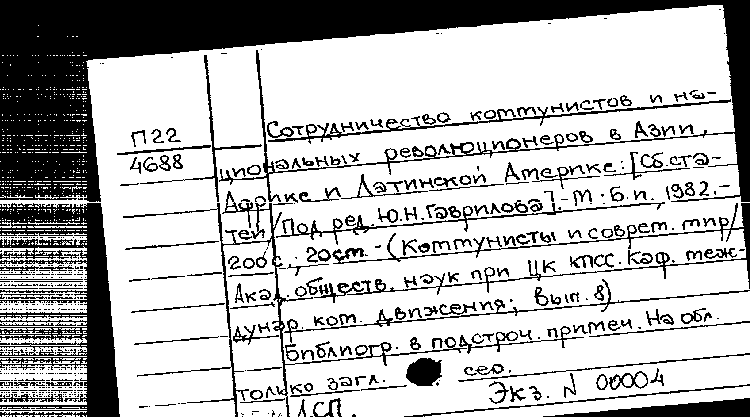 Сотрудничество коммунистов и на-
П22
4688
циональных революционеров в Азии,
Африке и Латинской Америке: [Сб. ста-
тей/Под ред. Ю.Н. Гаврилова].-М.: Б.и., 1982.-
200с.; 20см.-(Коммунисты и соврем. мир/
Акад. обществ. наук при ЦК КПСС. Каф. меж-
дунар. ком. движения; Вып. 8)
Библиогр. в подстроч. примеч. На обл.
только загл. сер.
Экз. N 00004
ДСП.